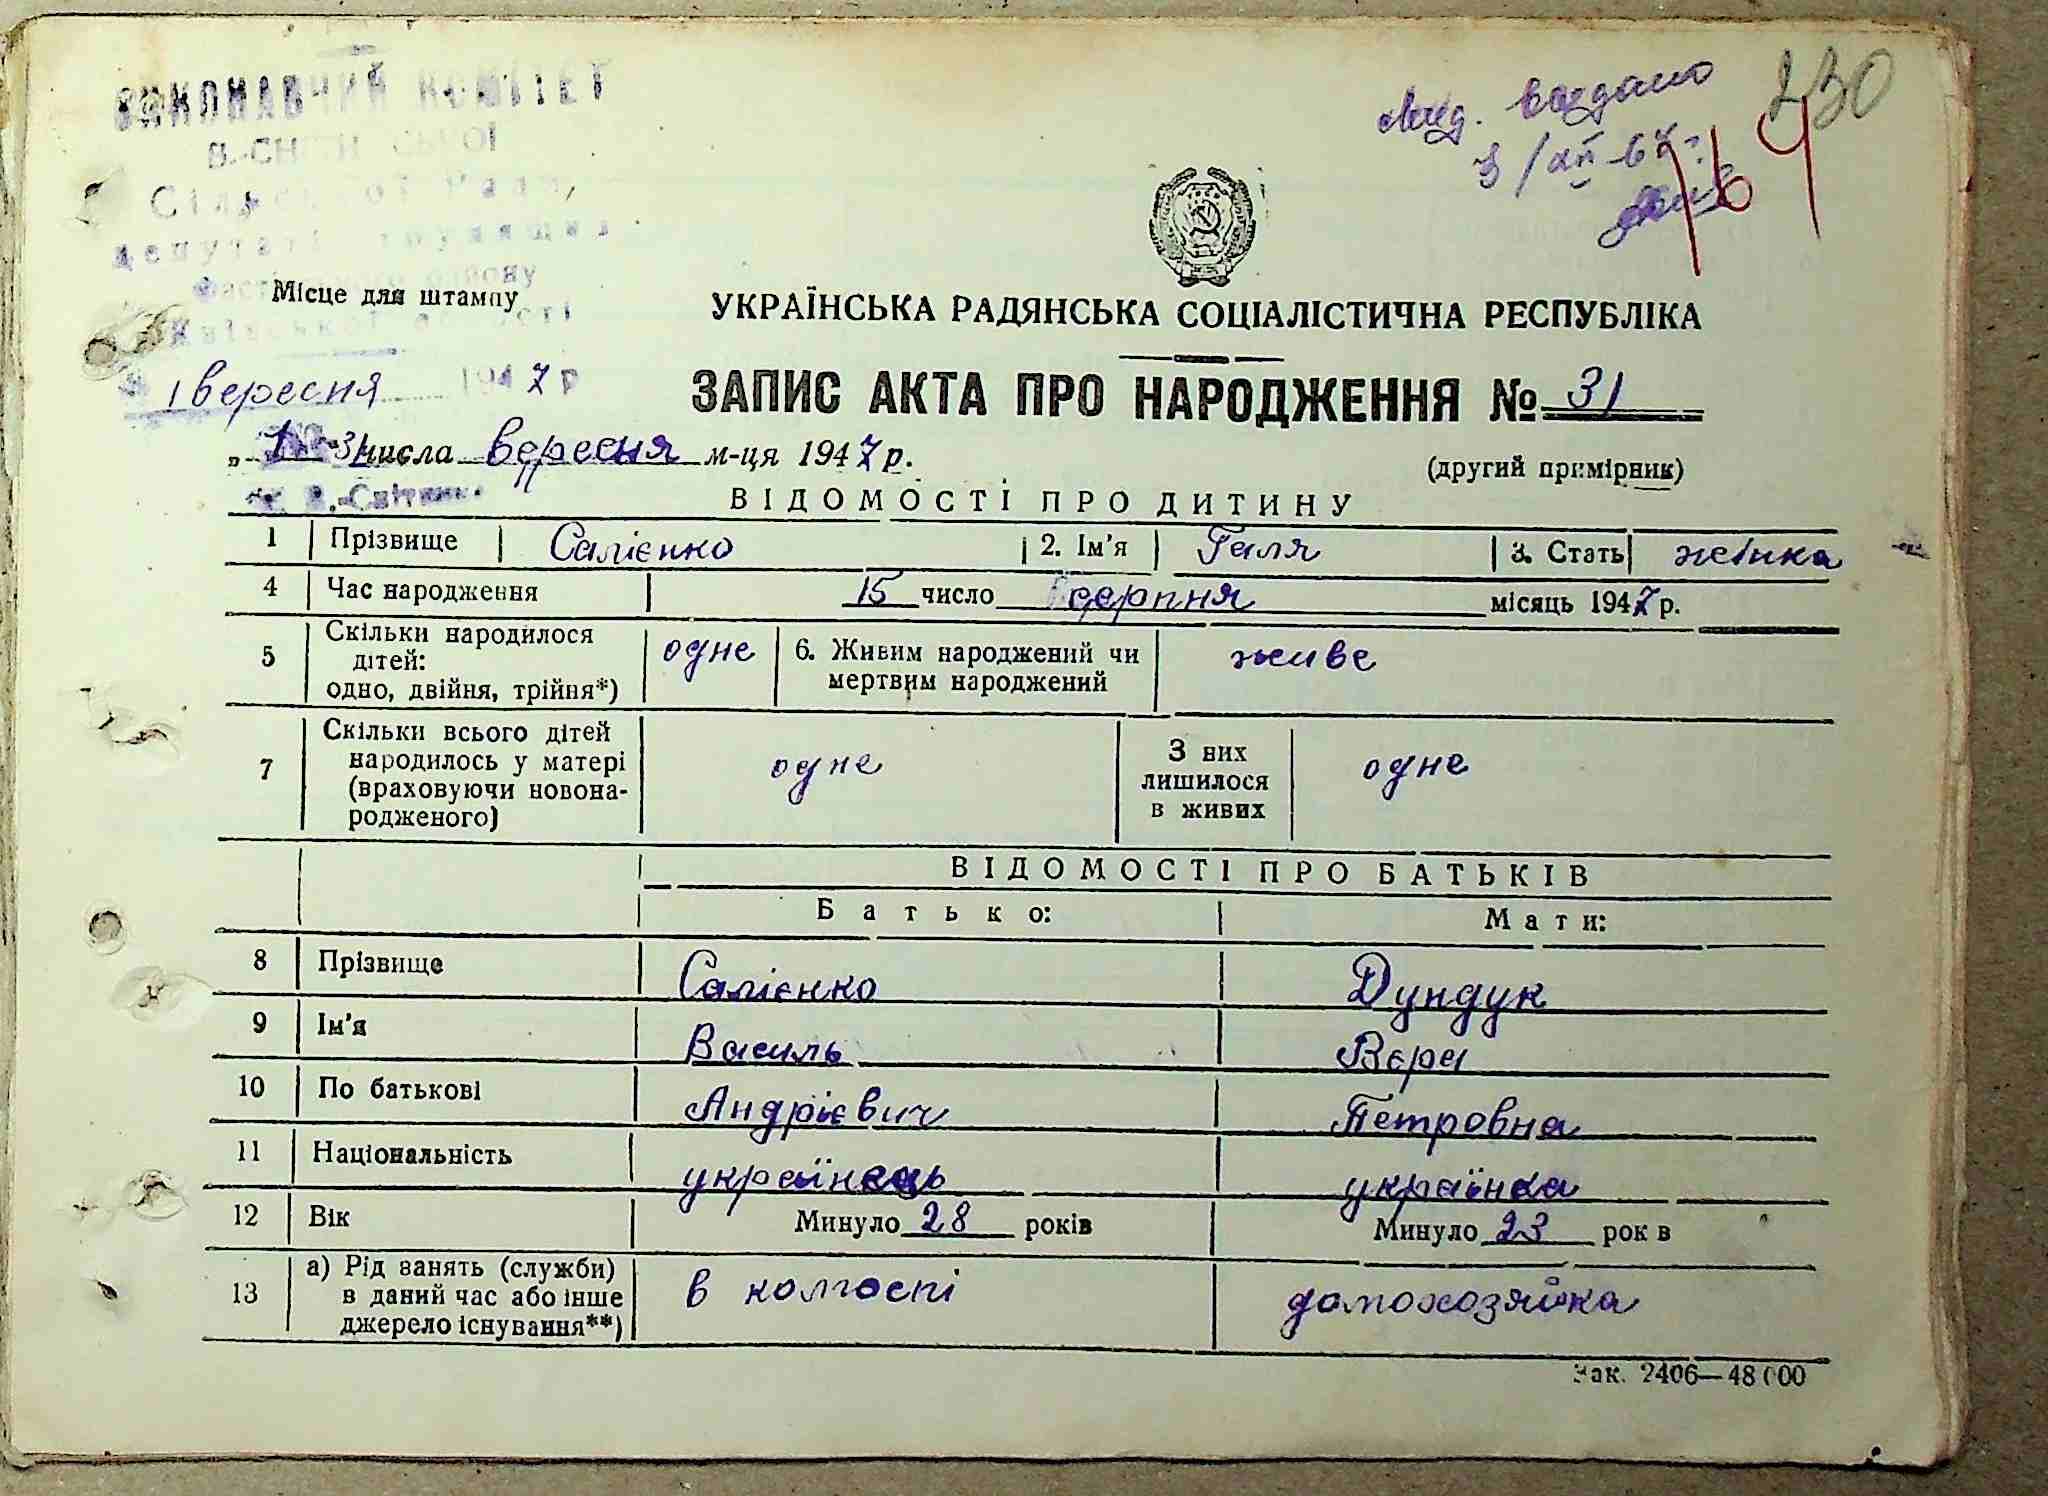 ВИКОНАВЧИЙ КОМІТЕТ
Сільської Ради
депутатів трудящих
Фастівського району
Київської області
1 вересня 1947 р
230
164
Місце для штампу
УКРАЇНСЬКА РАДЯНСЬКА СОЦІАЛІСТИЧНА РЕСПУБЛІКА
ЗАПИС АКТА ПРО НАРОДЖЕННЯ № 31
„ 1 " числа вересня м-ця 1947 р.
(другий примірник)
ВІДОМОСТІ ПРО ДИТИНУ
1 Прізвище Салієнко 2. Ім'я Галя 3. Стать жінка
4 Час народження 15 число серпня місяць 1947 р.
5 Скільки народилося дітей: одно, двійня, трійня*) одне 6. Живим народжений чи мертвим народжений живе
7 Скільки всього дітей народилось у матері (враховуючи новонародженого) одне З них лишилося в живих одне
ВІДОМОСТІ ПРО БАТЬКІВ
Батько: Мати:
8 Прізвище Салієнко Дундук
9 Ім'я Василь Вєра
10 По батькові Андрієвич Петровна
11 Національність українець українка
12 Вік Минуло 28 років Минуло 23 рок в
13 а) Рід занять (служби) в даний час або інше джерело існування**) в колгоспі домохозяйка
Зак. 2406—48000